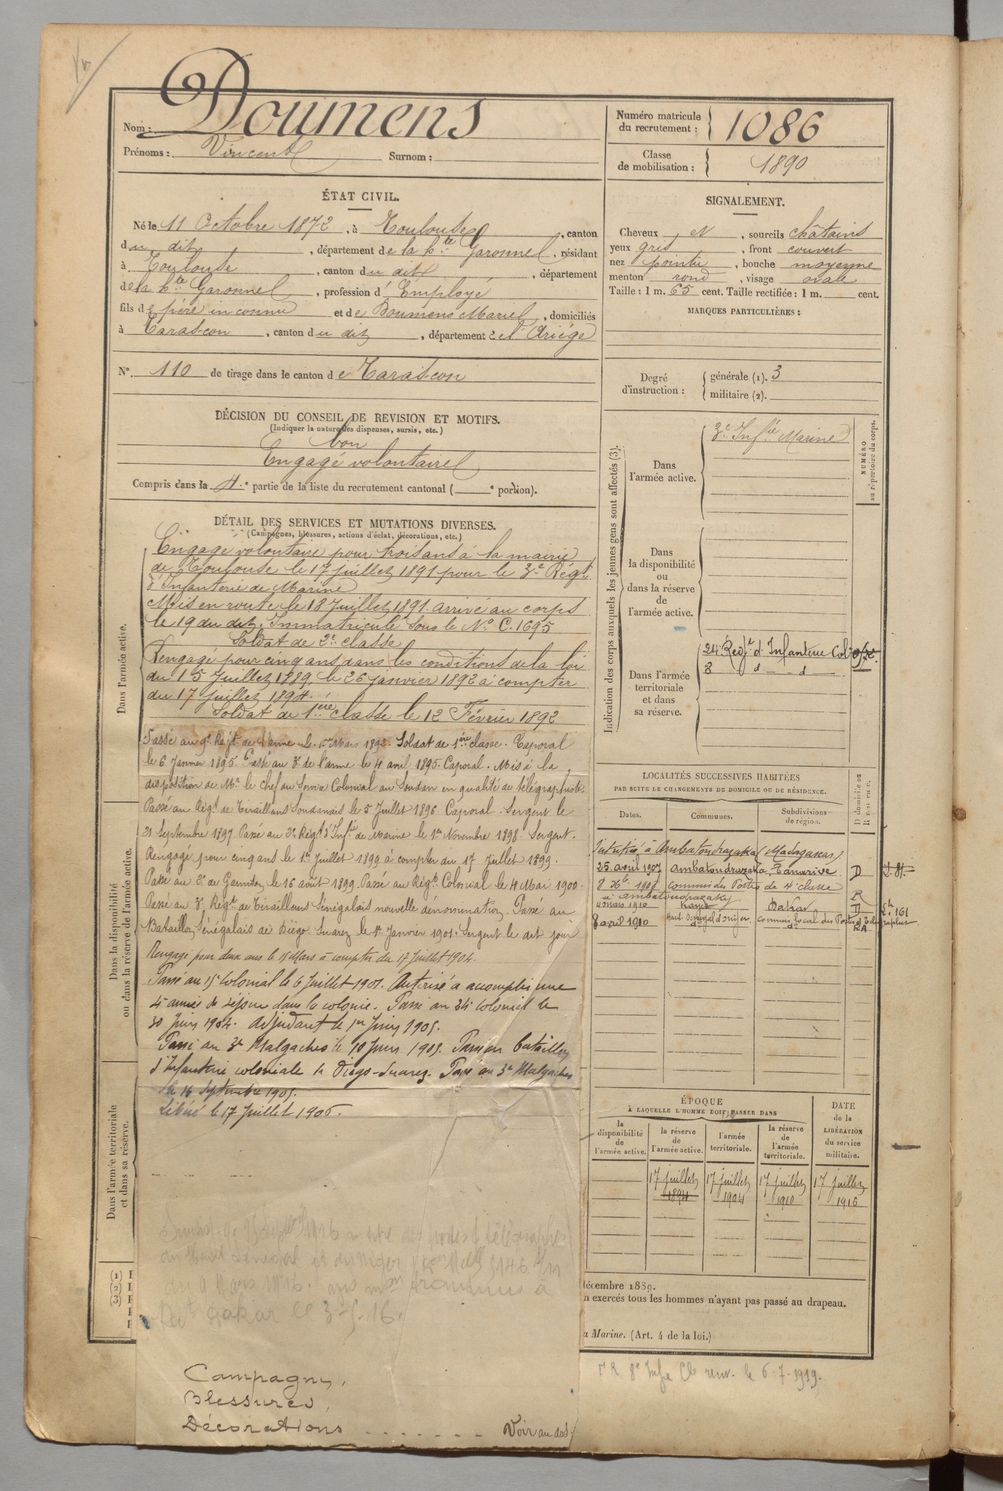 Nom : Doumens
Prénoms : Vincent Surnom :
Numéro matricule du recrutement : 1086
Classe de mobilisation : 1890
ÉTAT CIVIL.
Né le 11 Octobre 1872, à Toulouse, canton
du dit, département de la Hte Garonne, résidant
à Toulouse, canton du dit, département
de la Hte Garonne, profession d'Employé
fils de père inconnu et de Doumens Marie, domiciliés
à Tarascon, canton du dit, département de l'Ariège
N° 110 de tirage dans le canton de Tarascon
SIGNALEMENT.
Cheveux N, sourcils châtains
yeux gris, front couvert
nez pointu, bouche moyenne
menton rond, visage ovale
Taille : 1 m. 65 cent. Taille rectifiée : 1 m. cent.
MARQUES PARTICULIÈRES :
Degré d'instruction : générale (1). 3
militaire (2).
DÉCISION DU CONSEIL DE REVISION ET MOTIFS.
(Indiquer la nature des dispenses, sursis, etc.)
bon
Engagé volontaire
Compris dans la 4e partie de la liste du recrutement cantonal ( e portion).
DÉTAIL DES SERVICES ET MUTATIONS DIVERSES.
(Campagnes, blessures, actions d'éclat, décorations, etc.)
Dans l'armée active.
Engagé volontaire pour trois ans à la mairie
de Toulouse le 17 juillet 1891 pour le 3e Régt
d'Infanterie de Marine
Mis en route le 18 Juillet 1891 arrivé au corps
le 19 du dit. Immatriculé sous le No C. 1695
Soldat de 2e classe
Rengagé pour cinq ans dans les conditions de la loi
du 15 Juillet 1889 le 26 janvier 1892 à compter
du 17 juillet 1894.
Soldat de 1ère classe le 12 Février 1892
Passé au 9e Régt de l'arme le 1892. Soldat de 1ère classe. Caporal
le 6 Janvier 1895. Passé au 3e de l'arme le 4 avril 1895. Caporal. Mis à la
disposition de Mr le chef du Service Colonial au Soudan en qualité de télégraphiste.
Passé au Régt de Tirailleurs Soudanais le 5 Juillet 1896. Caporal. Sergent le
21 Septembre 1897. Passé au 3e Régt d'Infie de Marine le 1er Novembre 1898. Sergent.
Rengagé pour cinq ans le 1er Juillet 1899 à compter du 17 Juillet 1899.
Passé au le 16 août 1899. Passé au Régt Colonial le 4 Mai 1900
Passé au 3e Régt de Tirailleurs Sénégalais nouvelle dénomination. Passé au
Bataillon Sénégalais de Diégo Suarez le 1er Janvier 1901. Sergent le dit jour
Rengagé pour deux ans le 15 Mars à compter du 17 juillet 1904.
Passé au 15e Colonial le 6 Juillet 1901. Autorisé à accomplir une
4e année de séjour dans la colonie. Passé au Colonial le
30 Juin 1904. Adjudant le 1er Juin 1905.
Passé au 3e Malgaches le 10 Juin 1905. Passé au bataillon
d'Infanterie coloniale de Diégo-Suarez. Passé au 3e Malgaches
le 16 Septembre 1905.
Libéré le 17 Juillet 1906.
Dans la disponibilité ou dans la réserve de l'armée active.
Dans l'armée territoriale et dans sa réserve.
et du Niger
Dakar
Campagnes,
Blessures,
Décorations . . . . . . . Voir au dos
Indication des corps auxquels les jeunes gens sont affectés (3).
NUMÉRO au répertoire du corps.
Dans l'armée active. 3e Infie Marine
Dans la disponibilité ou dans la réserve de l'armée active.
Dans l'armée territoriale et dans sa réserve.
24 Regt d'Infanterie Cole
8 d d
LOCALITÉS SUCCESSIVES HABITÉES
PAR SUITE DE CHANGEMENTS DE DOMICILE OU DE RÉSIDENCE.
Dates. Communes. Subdivisions de région.
Ambatondrazaka (Madagascar)
25 avril 1907 Ambatondrazaka Tananarive D
1907 commis des Postes de 4e classe
à Ambatondrazaka R
mars 1910 Dakar D
8 avril 1910 Haut Sénégal et Niger commis local des Postes et Télégraphes
ÉPOQUE
À LAQUELLE L'HOMME DOIT PASSER DANS
la disponibilité de l'armée active.
la réserve de l'armée active.
l'armée territoriale.
la réserve de l'armée territoriale.
DATE de la LIBÉRATION du service militaire.
17 juillet 1894
17 juillet 1904
17 juillet 1910
17 juillet 1916
décembre 1889.
n exercés tous les hommes n'ayant pas passé au drapeau.
a Marine. (Art. 4 de la loi.)
8e Infie Cle le 6-7-1919.